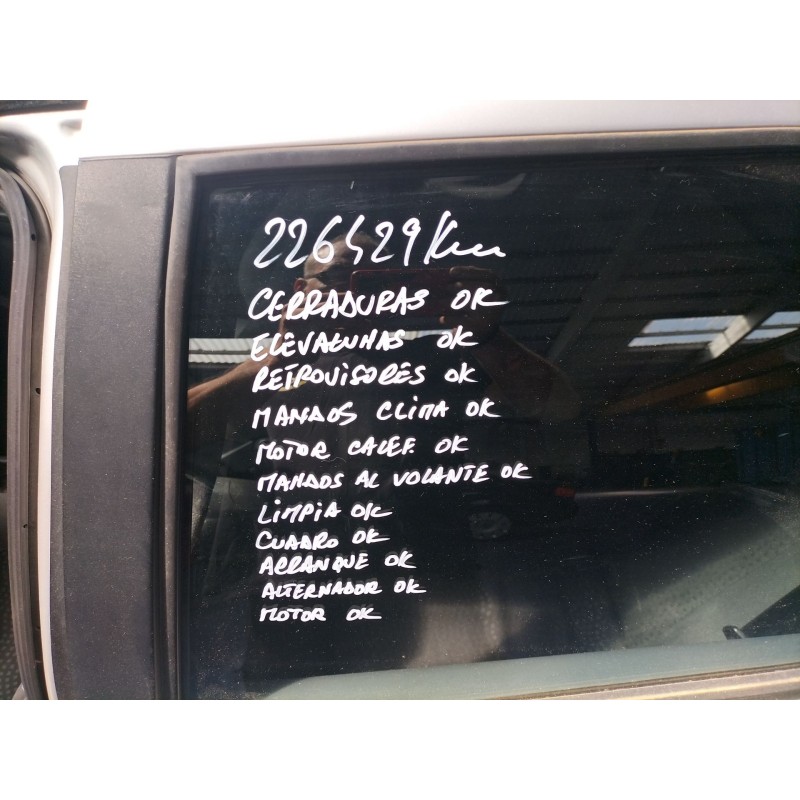 226429 Km
CERRADURAS OK
ELEVALUNAS OK
RETROVISORES OK
MANDOS CLIMA OK
MOTOR CALEF. OK
MANDOS AL VOLANTE OK
LIMPIA OK
CUADRO OK
ARRANQUE OK
ALTERNADOR OK
MOTOR OK